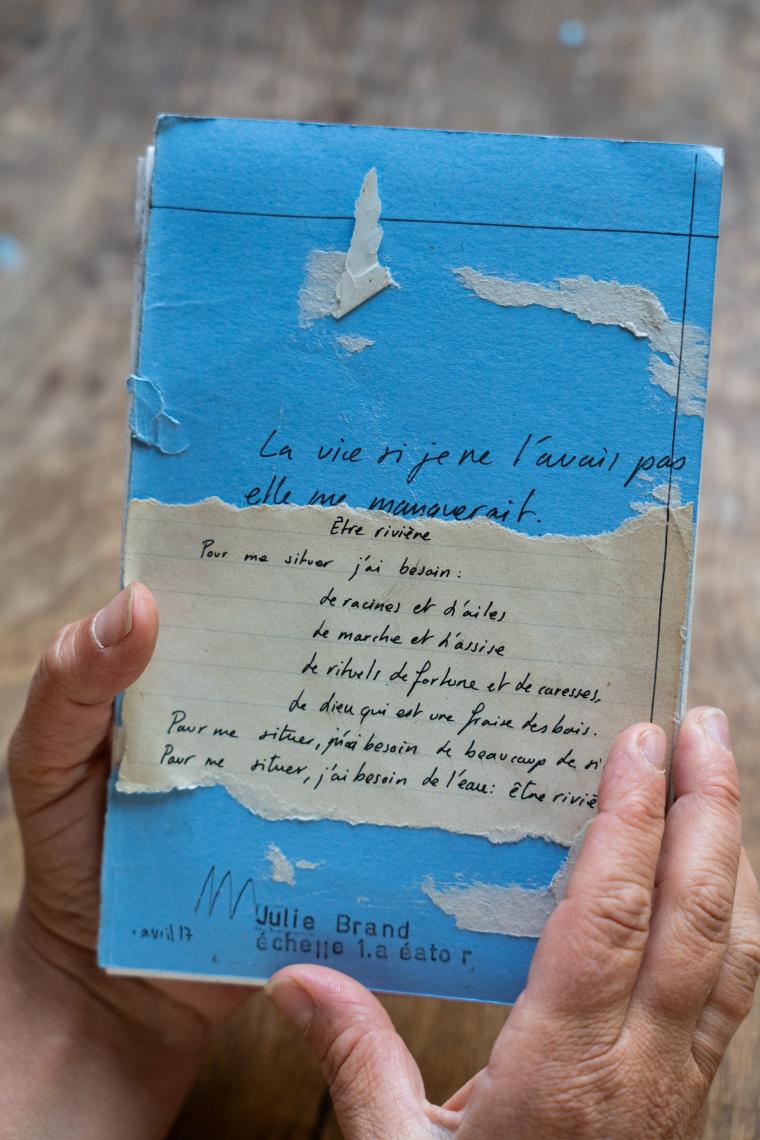 La vie si je ne l'avais pas
elle me manquerait.
Être rivière
Pour me situer j'ai besoin :
de racines et d'ailes
de marche et d'assise
de rituels de fortune et de caresses,
de dieu qui est une fraise des bois.
Pour me situer, j'ai besoin de beaucoup de
Pour me situer, j'ai besoin de l'eau: être
avril 17
Julie Brand
échelle 1.a éato r